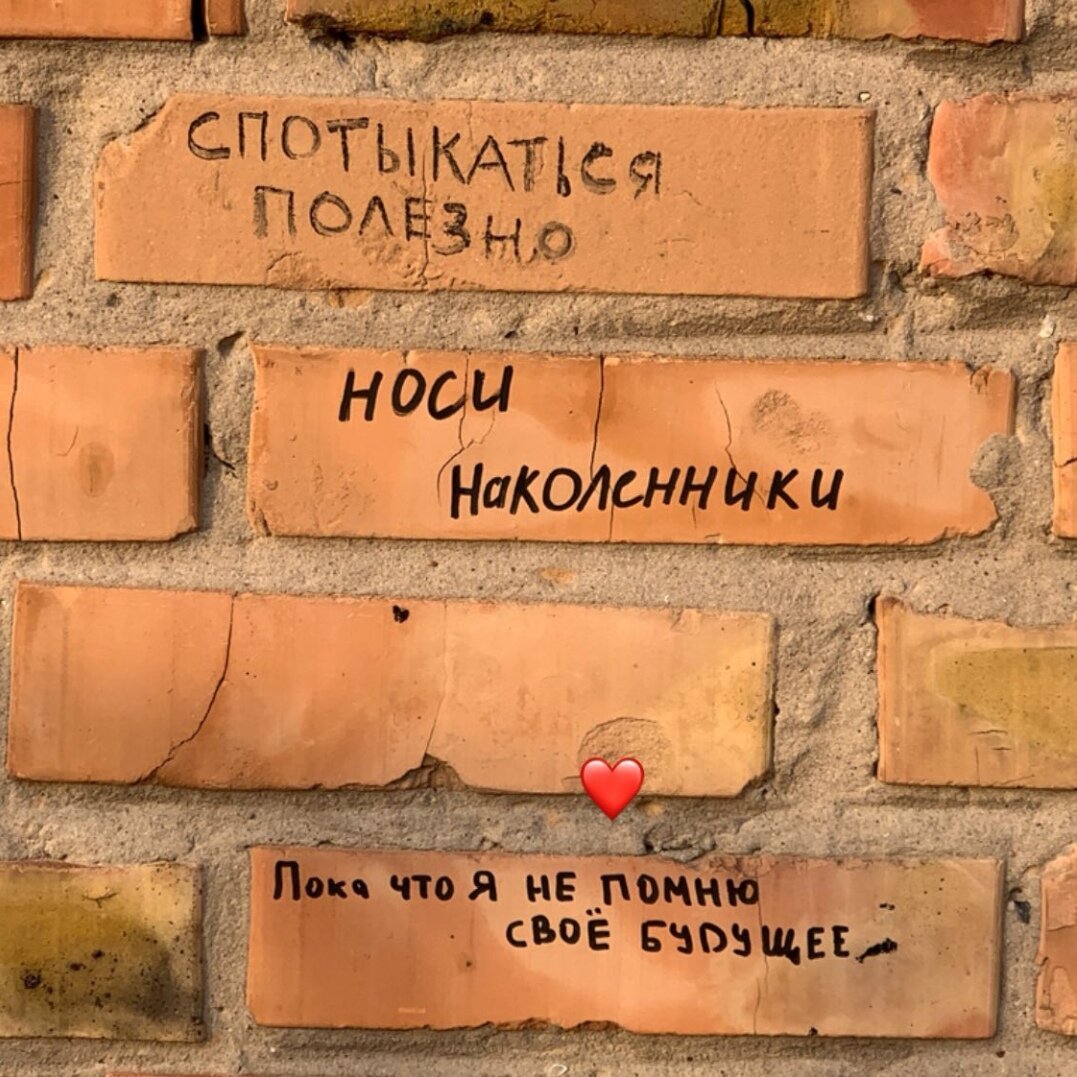 СПОТЫКАТЬСЯ
ПОЛЕЗНО
НОСИ
Наколенники
Пока что Я НЕ ПОМНЮ
СВОЁ БУДУЩЕЕ